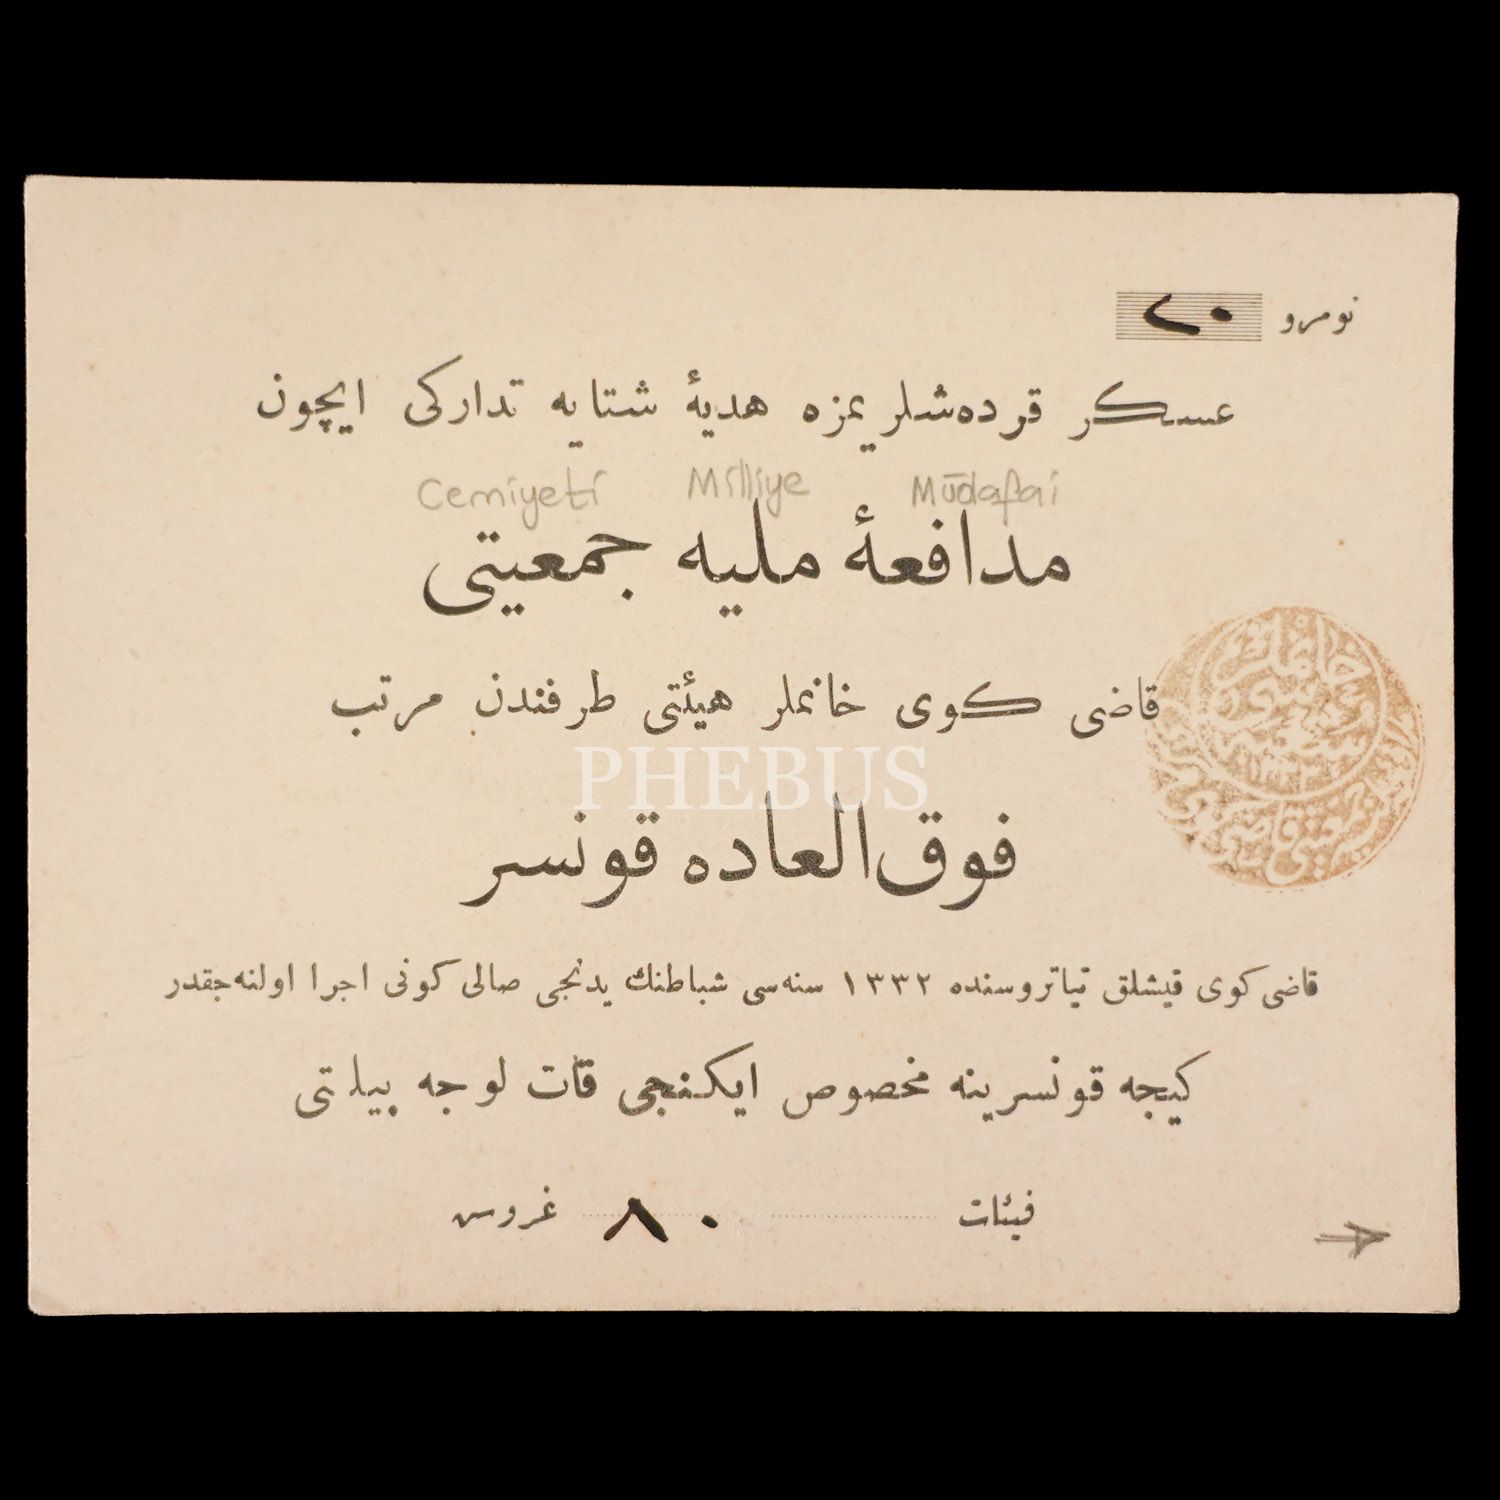 نومرو ٢٠
عسكر قرده‌شلريمزه هديهٔ شتايه تداركى ايچون
Cemiyeti Milliye Müdafai
مدافعهٔ مليه جمعيتى
قاضى كوى خانملر هيئتى طرفندن مرتب
PHEBUS
فوق‌العاده قونسر
قاضى كوى قيشلق تياتروسنده ١٣٣٢ سنه‌سى شباطنك يدنجى صالى كونى اجرا اولنه‌جقدر
كيجه قونسرينه مخصوص ايكنجى قات لوجه بيلتى
فيئات ٨٠ غروس